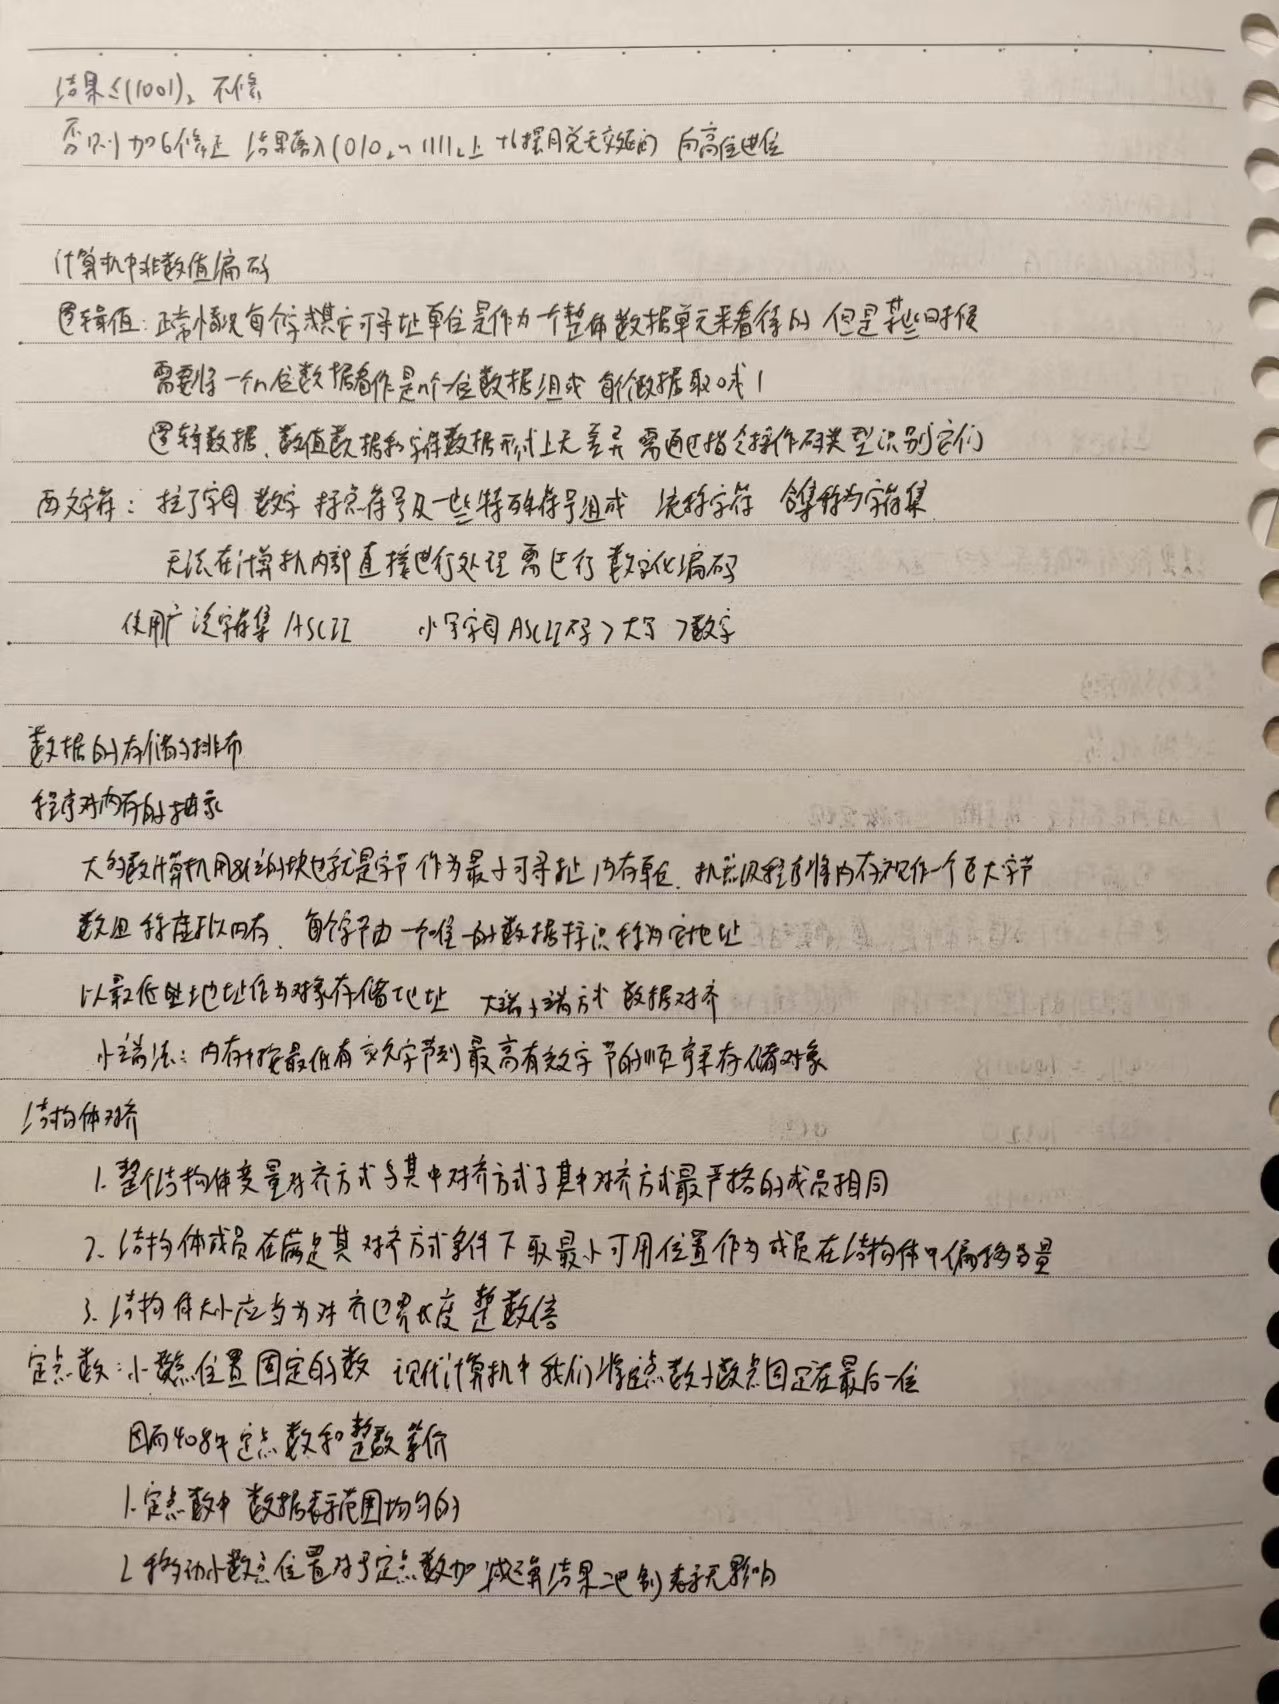 结果≤(1001)₂ 不修
否则加6修正 结果落入1010₂~1111₂上 +6摆脱无效区间 向高位进位
计算机中非数值编码
逻辑值：正常情况每个字或其它可寻址单位是作为一个整体数据单元来看待的 但是某些时候
需要将一个n位数据看作是n个一位数据组成 每个数据取0或1
逻辑数据、数值数据和字符数据形式上无差异 需通过指令操作码类型识别它们
西文字符：拉丁字母 数字 标点符号及一些特殊符号组成 统称字符 合集称为字符集
无法在计算机内部直接进行处理 需进行数字化编码
使用广泛字符集ASCII 小写字母ASCII码>大写>数字
数据的存储与排布
程序对内存的抽象
大多数计算机用8位的块也就是字节作为最小可寻址内存单位、机器级程序将内存视作一个巨大字节
数组 称虚拟内存、每个字节由一个唯一的数据标识称为它地址
以最低处地址作为对象存储地址 大端小端方式 数据对齐
小端法：内存中按最低有效字节到最高有效字节的顺序来存储对象
结构体对齐
1. 整个结构体变量对齐方式与其中对齐方式与其中对齐方式最严格的成员相同
2. 结构体成员在满足其对齐方式条件下取最小可用位置作为成员在结构体中偏移量
3. 结构体大小应当为对齐边界长度整数倍
定点数：小数点位置固定的数 现代计算机中我们将定点数小数点固定在最后一位
因而408中定点数和整数等价
1. 定点数中 数据表示范围均匀的
2 移动小数点位置对于定点数加减运算结果二进制表示无影响